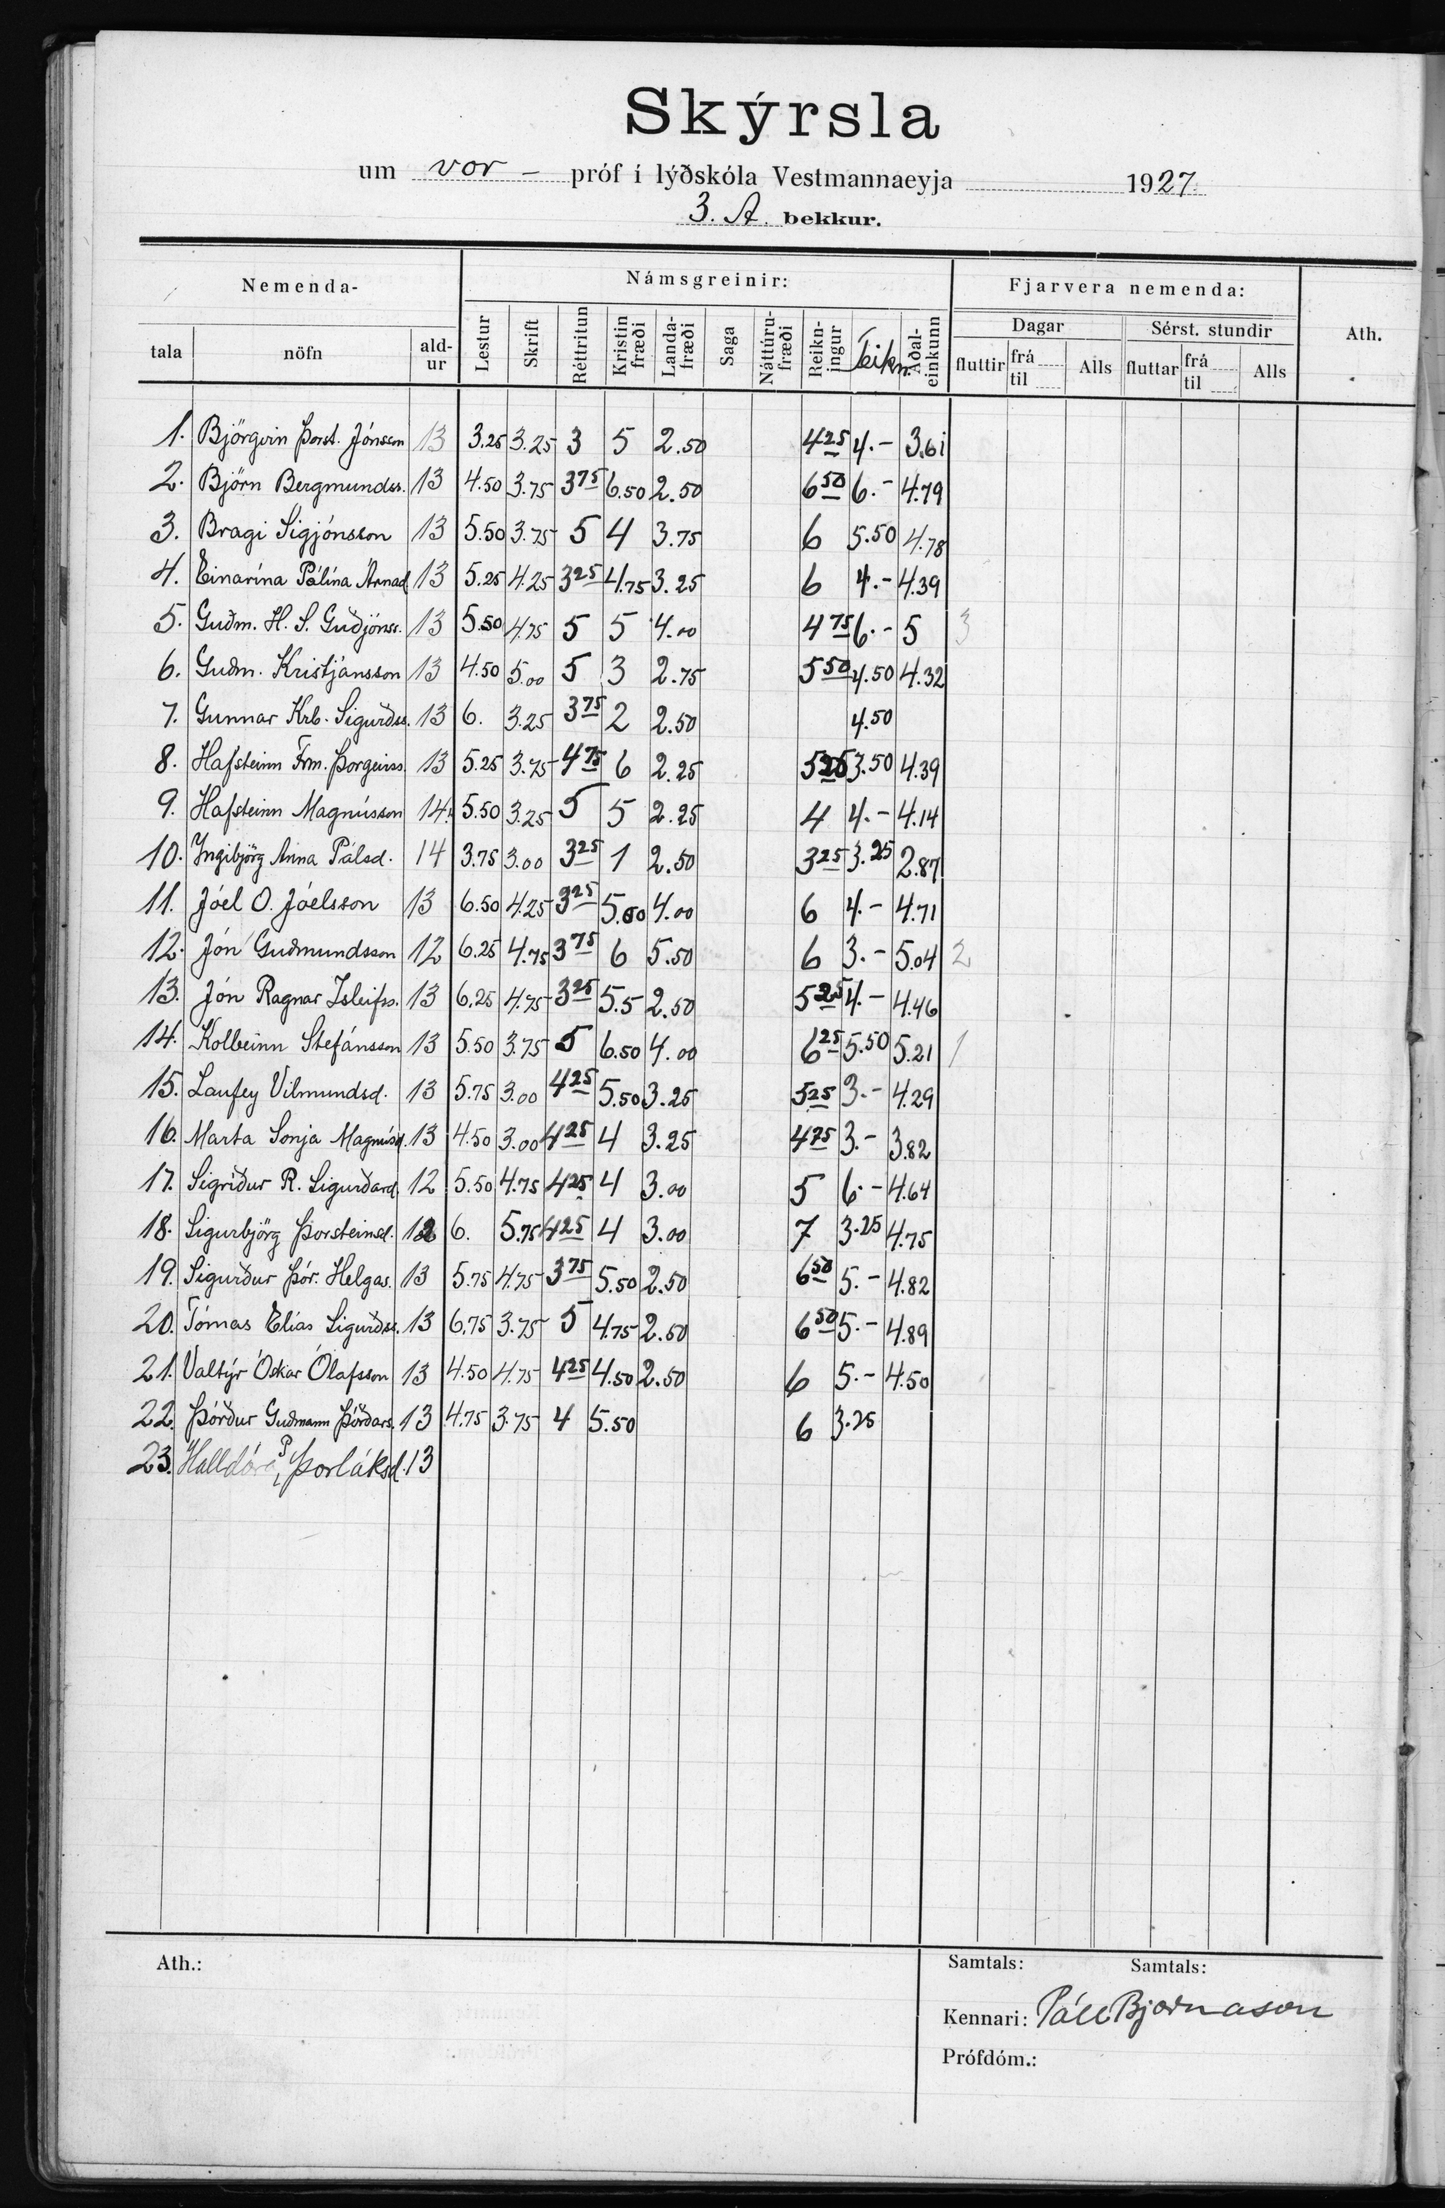 Skýrsla
um vor - próf í lýðskóla Vestmannaeyja 1927.
3. A. bekkur.
Nemenda- Námsgreinir: Fjarvera nemenda: Ath.
tala nöfn ald-ur Lestur Skrift Réttritun Kristinfræði Landa-fræði Saga Náttúru-fræði Reikn-ingur Teikn. Aðal-einkunn Dagar Sérst. stundir
fluttir frá til Alls fluttar frá til Alls
1. Björgvin Þorst. Jónsson 13 3.25 3.25 3 5 2.50 4 25 4.- 3.61
2. Björn Bergmundss. 13 4.50 3.75 3 75 6.50 2.50 6 50 6.- 4.79
3. Bragi Sigjónsson 13 5.50 3.75 5 4 3.75 6 5.50 4.78
4. Einarína Pálína Árnad 13 5.25 4.25 3 25 4.75 3.25 6 4.- 4.39
5. Guðm. H. S. Guðjónss. 13 5.50 4.75 5 5 4.00 4 75 6.- 5 3
6. Guðm. Kristjánsson 13 4.50 5.00 5 3 2.75 5 50 4.50 4.32
7. Gunnar Krb. Sigurðss. 13 6. 3.25 3 75 2 2.50 4.50
8. Hafsteinn Frm. Þorgeirss. 13 5.25 3.75 4 75 6 2.25 5 25 3.50 4.39
9. Hafsteinn Magnússon 14. 5.50 3.25 5 5 2.25 4 4.- 4.14
10. Yngibjörg Anna Pálsd. 14 3.75 3.00 3 25 1 2.50 3 25 3.25 2.87
11. Jóel O. Jóelsson 13 6.50 4.25 3 25 5.50 4.00 6 4.- 4.71
12. Jón Guðmundsson 12 6.25 4.75 3 75 6 5.50 6 3.- 5.04 2
13. Jón Ragnar Ísleifss. 13 6.25 4.75 3 25 5.5 2.50 5 25 4.- 4.46
14. Kolbeinn Stefánsson 13 5.50 3.75 5 6.50 4.00 6 25 5.50 5.21 1
15. Laufey Vilmundsd. 13 5.75 3.00 4 25 5.50 3.25 5 25 3.- 4.29
16. Marta Sonja Magnúsd. 13 4.50 3.00 4 25 4 3.25 4 75 3.- 3.82
17. Sigríður R. Sigurðard. 12 5.50 4.75 4 25 4 3.00 5 6.- 4.64
18. Sigurbjörg Þorsteinsd. 12 6. 5.75 4 25 4 3.00 7 3.25 4.75
19. Sigurður Þór. Helgas. 13 5.75 4.75 3 75 5.50 2.50 6 50 5.- 4.82
20. Tómas Elías Sigurðss. 13 6.75 3.75 5 4.75 2.50 6 50 5.- 4.89
21. Valtýr Óskar Ólafsson 13 4.50 4.75 4 25 4.50 2.50 6 5.- 4.50
22. Þórður Guðmann Þórðars. 13 4.75 3.75 4 5.50 6 3.25
23. Halldóra P. Þorláksd. 13
Ath.: Samtals: Samtals:
Kennari: Páll Bjarnason
Prófdóm.: